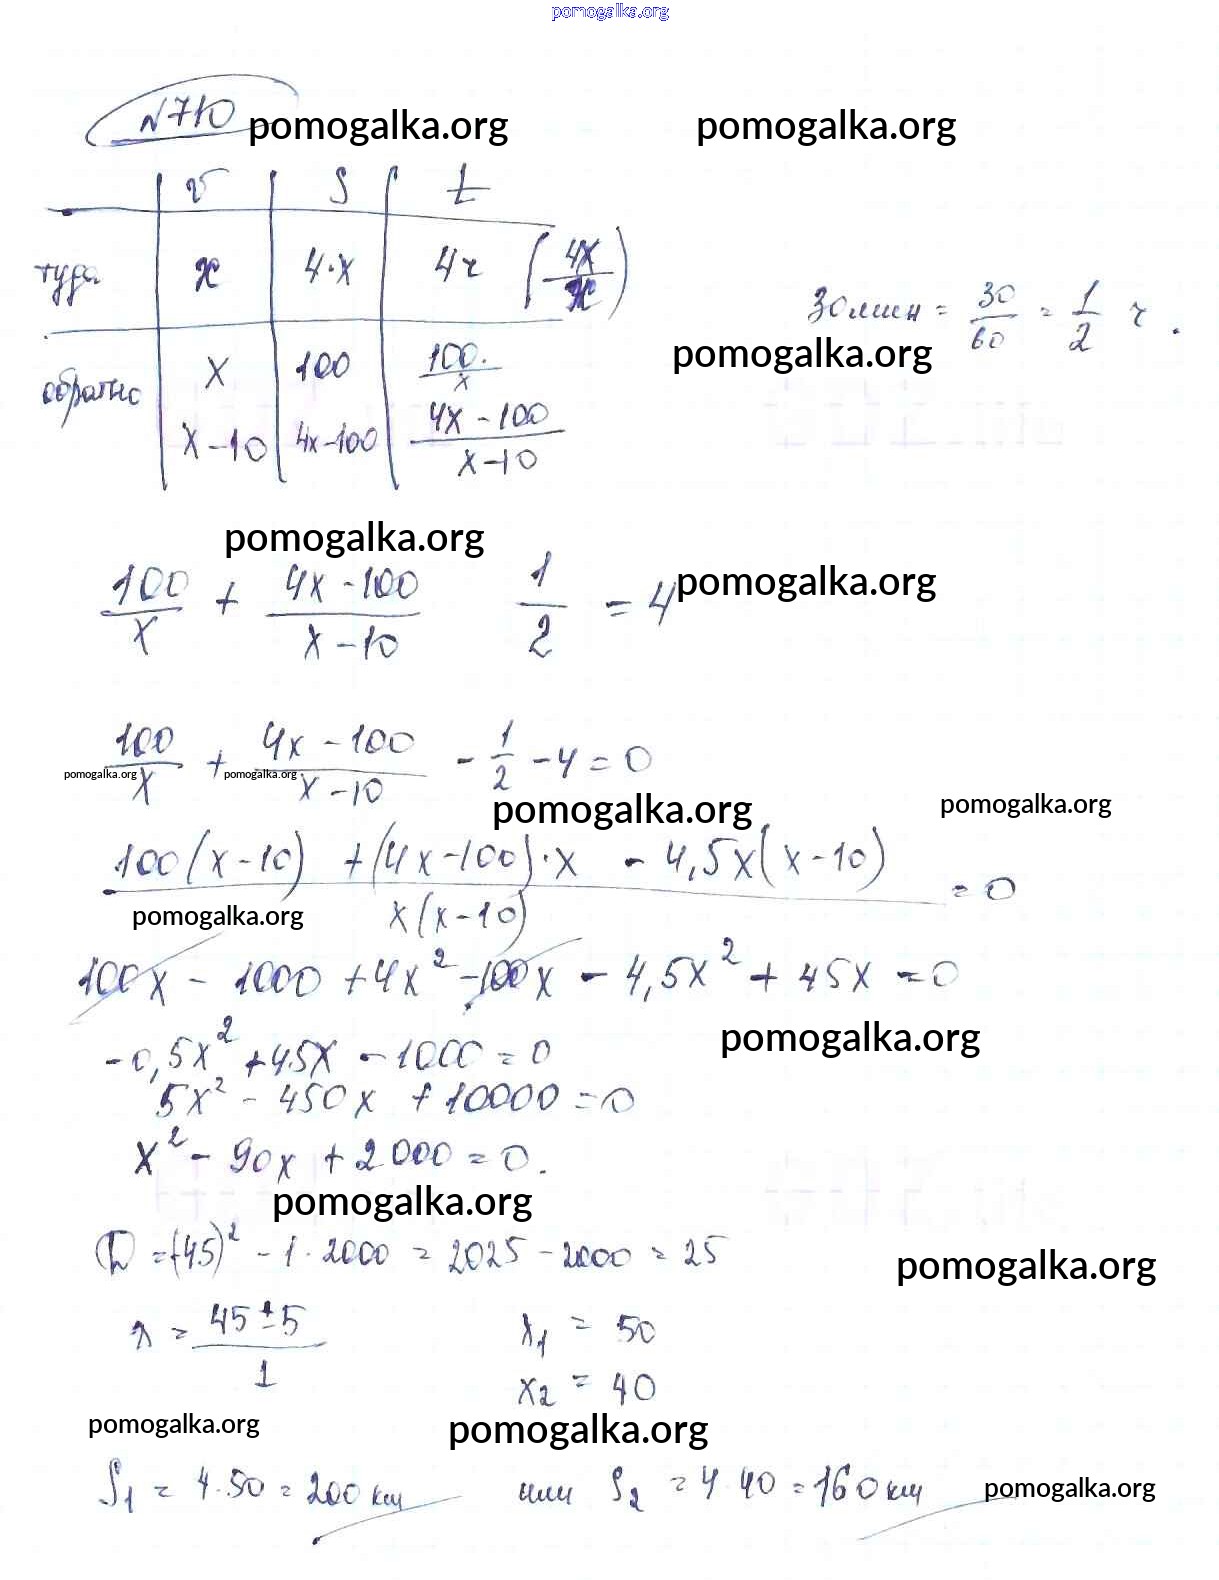 pomogalka.org
N710 pomogalka.org pomogalka.org
v S t
туда x 4·x 4ч (4x/x)
30мин = 30/60 = 1/2 ч.
pomogalka.org
обратно x 100 100/x
x-10 4x-100 (4x-100)/(x-10)
pomogalka.org
100/x + (4x-100)/(x-10) 1/2 = 4 pomogalka.org
100/x + (4x-100)/(x-10) - 1/2 - 4 = 0
pomogalka.org pomogalka.org
pomogalka.org pomogalka.org
(100(x-10) + (4x-100)·x - 4,5x(x-10))/(x(x-10)) = 0
pomogalka.org
100x - 1000 + 4x² - 100x - 4,5x² + 45x = 0
-0,5x² + 45x - 1000 = 0 pomogalka.org
5x² - 450x + 10000 = 0
x² - 90x + 2000 = 0.
pomogalka.org
D = (-45)² - 1·2000 = 2025 - 2000 = 25 pomogalka.org
x = (45±5)/1 x₁ = 50
x₂ = 40
pomogalka.org pomogalka.org
S₁ = 4·50 = 200 км или S₂ = 4·40 = 160 км pomogalka.org